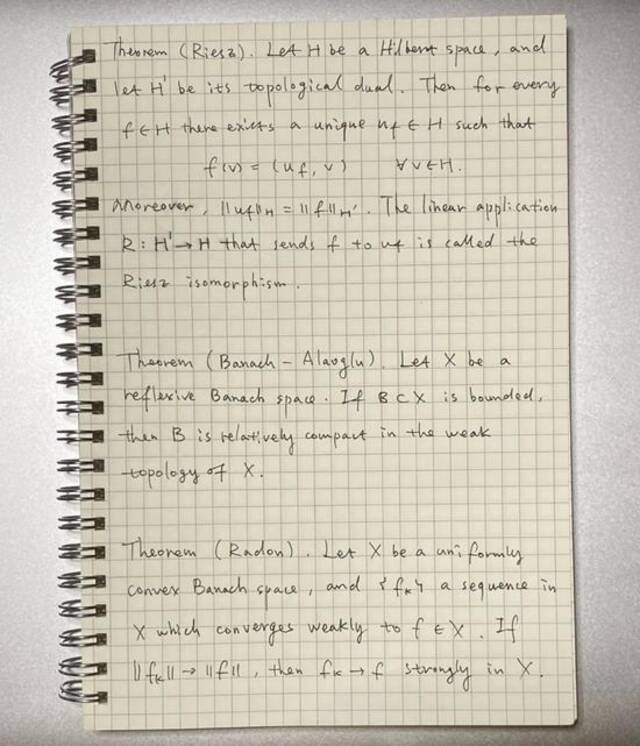 Theorem (Riesz). Let H be a Hilbert space, and
let H' be its topological dual. Then for every
f ∈ H there exists a unique u_f ∈ H such that
f(v) = (u_f, v) ∀ v ∈ H.
Moreover, ||u_f||_H = ||f||_H'. The linear application
R: H' → H that sends f to u_f is called the
Riesz isomorphism.
Theorem (Banach - Alaoglu). Let X be a
reflexive Banach space. If B ⊂ X is bounded,
then B is relatively compact in the weak
topology of X.
Theorem (Radon). Let X be a uniformly
convex Banach space, and {f_k} a sequence in
X which converges weakly to f ∈ X. If
||f_k|| → ||f||, then f_k → f strongly in X.